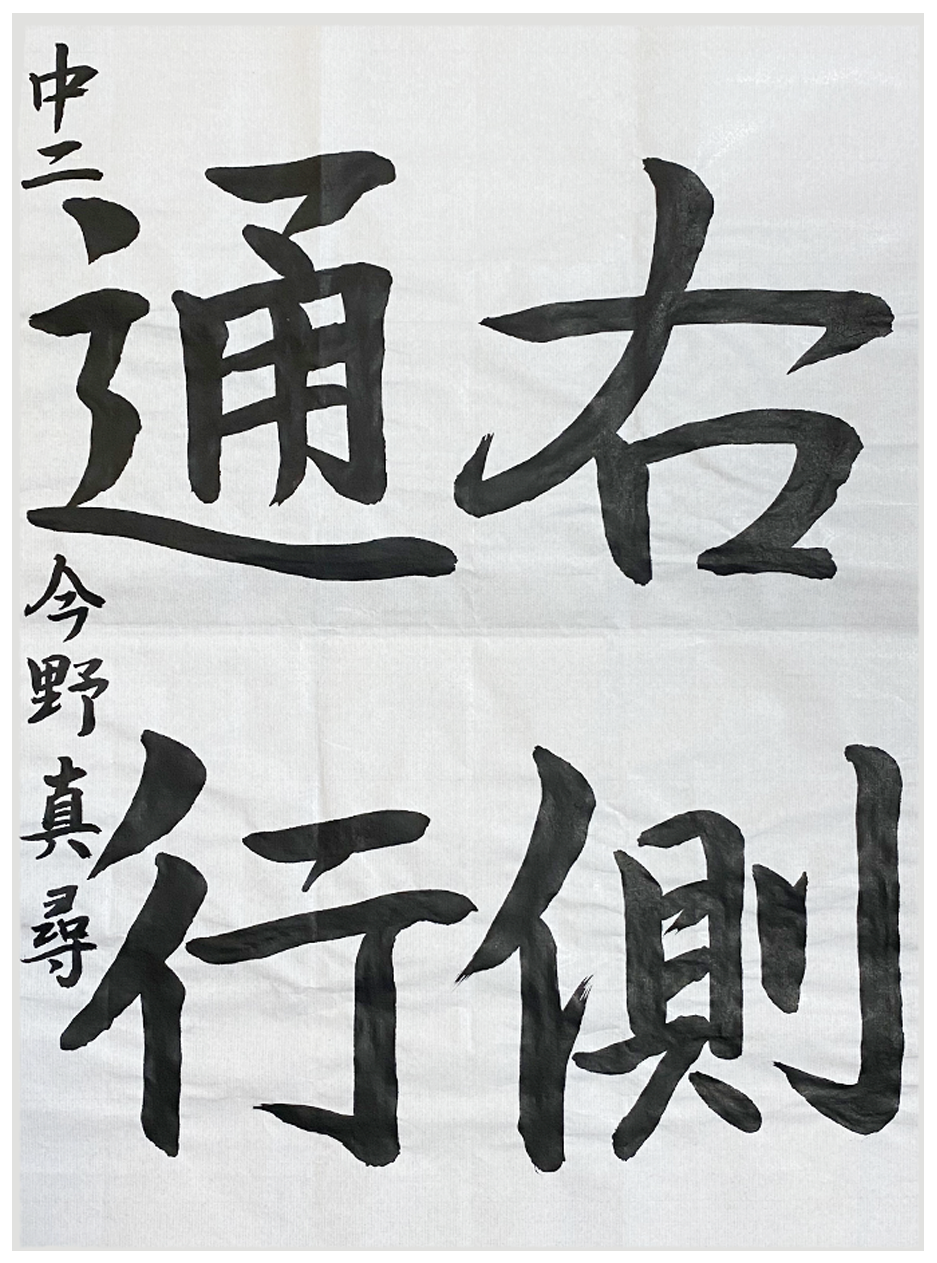 右側
通行
中二 今野真尋